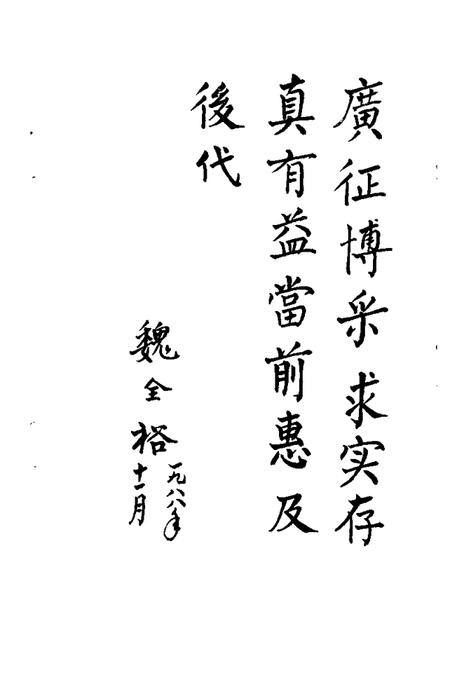 廣征博采求实存
真有益當前惠及
後代
魏全裕
一九八八年
十一月